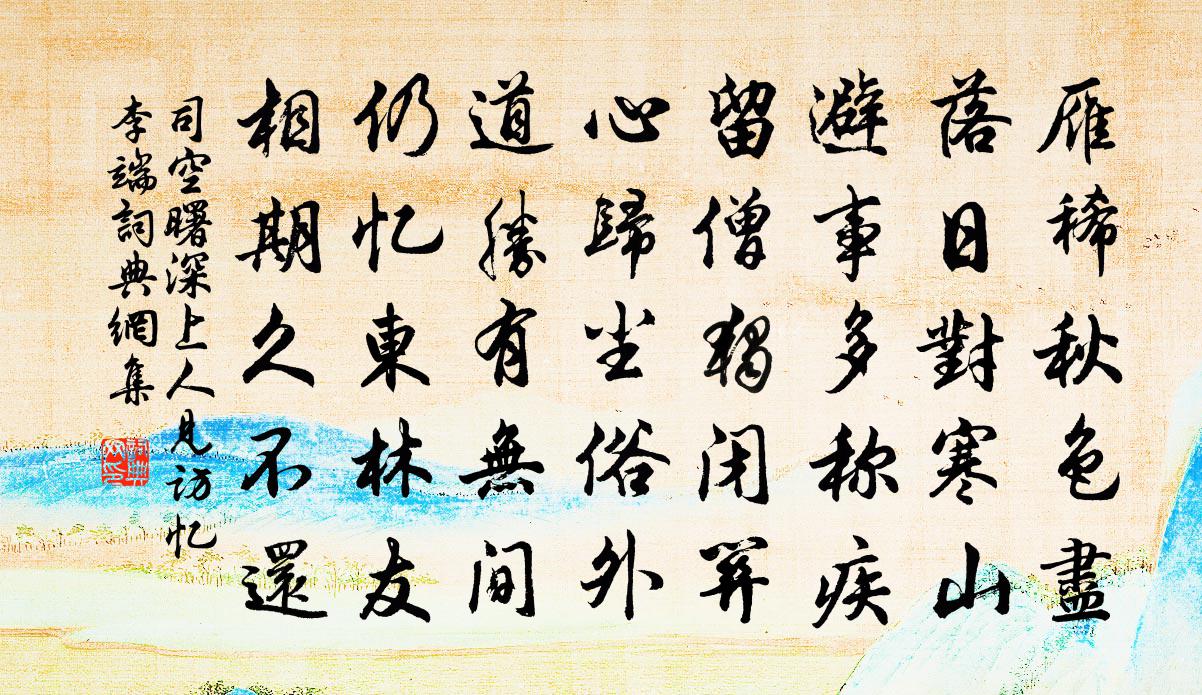 雁稀秋色盡
落日對寒山
避事多称疾
留僧獨闭關
心歸尘俗外
道勝有無間
仍忆東林友
相期久不還
司空曙深上人見訪忆
李端詞典網集